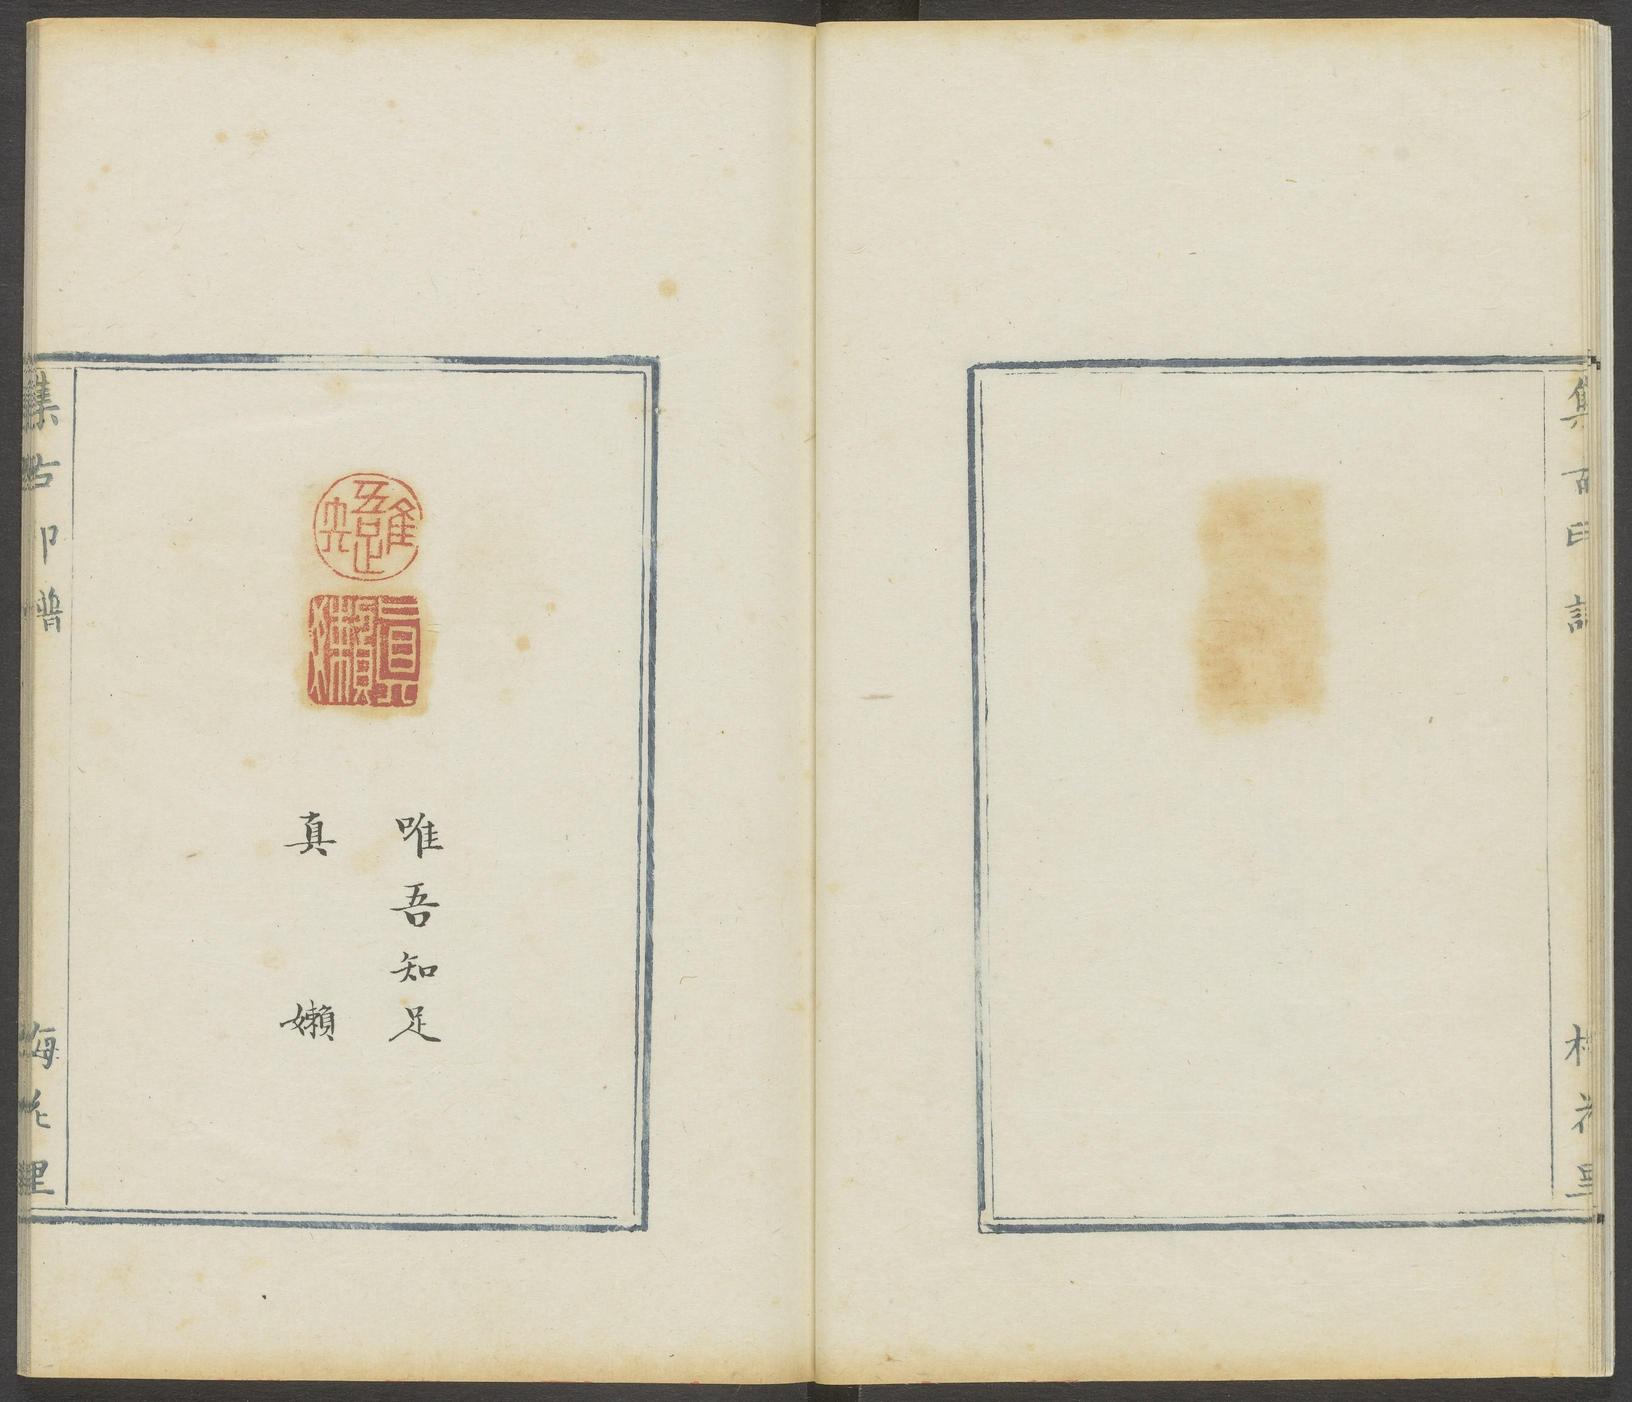 集古印譜
梅花里
唯吾知足
真嬾
集古印譜
梅花里